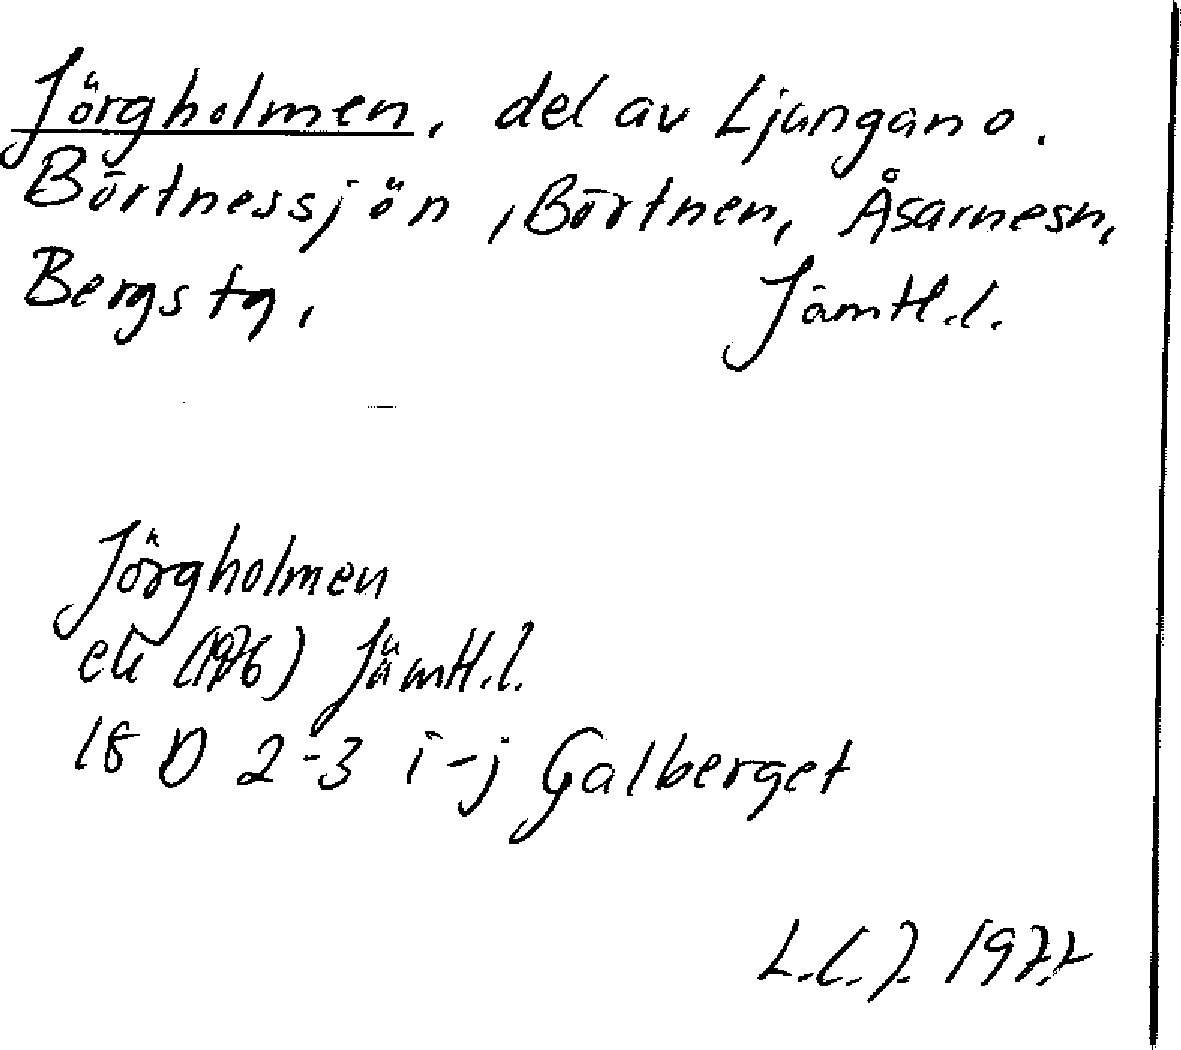 Jörgholmen, del av Ljungan o.
Börtnessjön, Börtnen, Åsarnesn,
Bergs tg, Jämtl.l.
Jörgholmen
ek (1976) Jämtl.l.
18 D 2-3 i-j Galberget
L.C.J. 1977